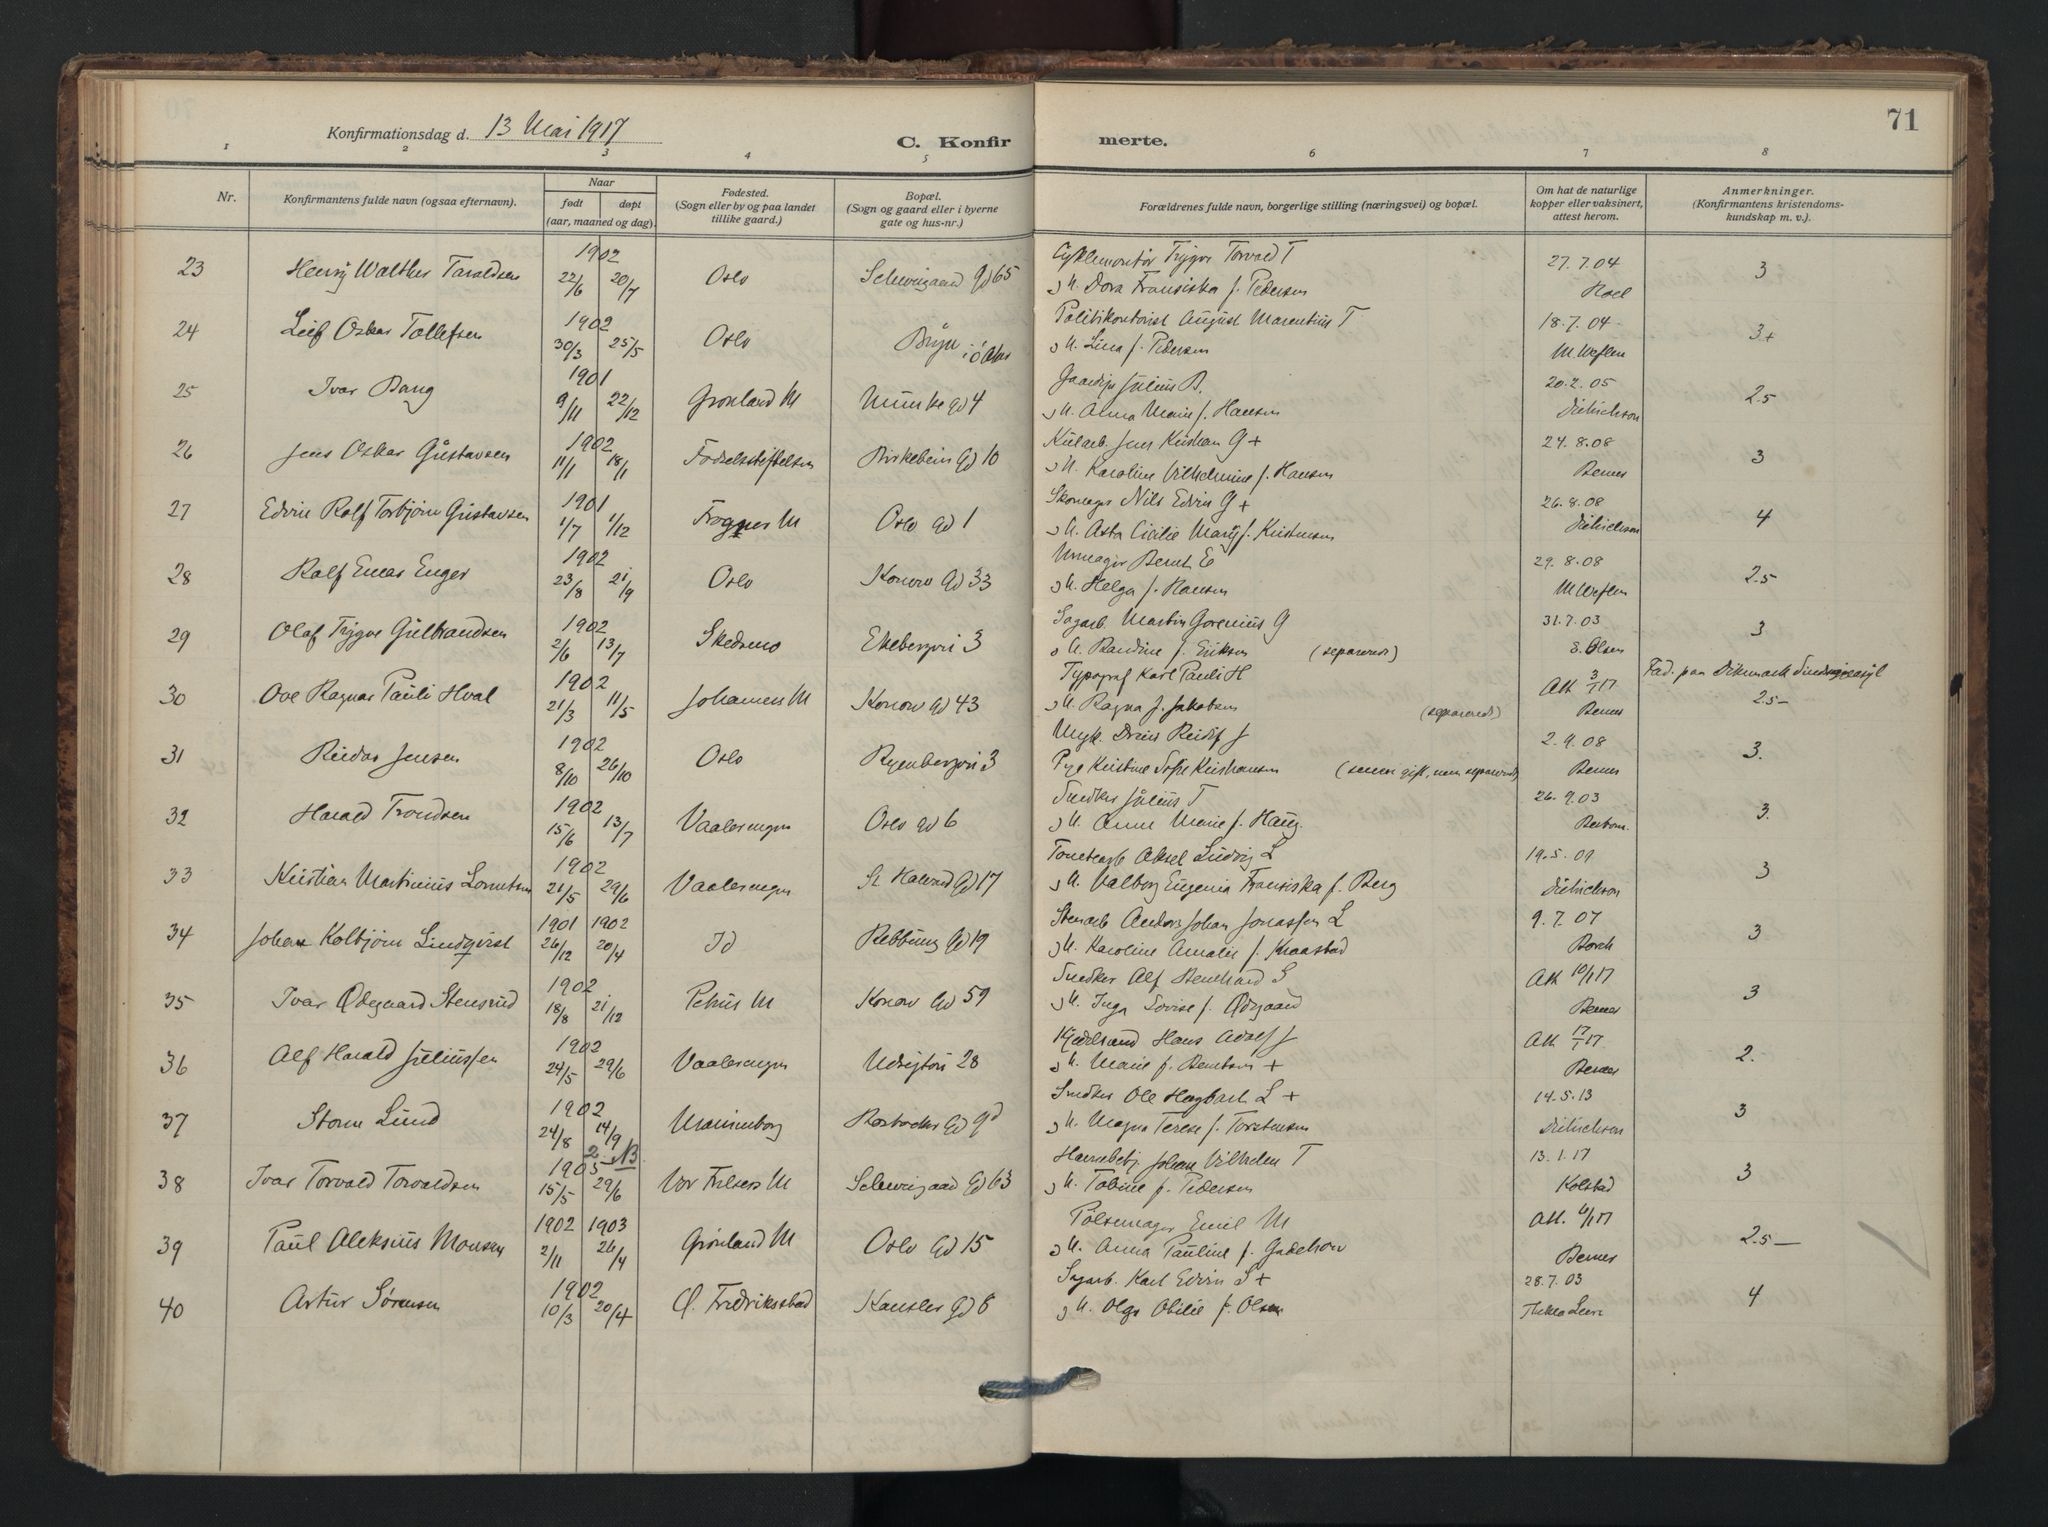 71
Konfirmationsdag d. 13 Mai 1917
C. Konfirmerte.
1 2 3 4 5 6 7 8
Nr.
Konfirmantens fulde navn (ogsaa efternavn).
Naar
født døpt
(aar, maaned og dag).
Fødested.
(Sogn eller by og paa landet
tillike gaard.)
Bopæl.
(Sogn og gaard eller i byerne
gate og hus-nr.)
Forældrenes fulde navn, borgerlige stilling (næringsvei) og bopæl.
Om hat de naturlige
kopper eller vaksinert,
attest herom.
Anmerkninger.
(Konfirmantens kristendoms-
kundskap m. v.).
1902 Cyklemontør Trygve Torvald T
23 Henry Walther Taraldsen 22/6 20/7 Oslo Schweigaard Gd 65 27.7.04 3
o H. Dora Fransiska f. Pedersen Hoel
1902 Politikonstabel August Marentius T
24 Leif Oskar Tollefsen 30/3 25/5 Oslo Bryn i Ø Aker 18.7.04 3+
o H. Lina f. Pedersen M Weflen
1901 Gaardejer Julius B.
25 Ivar Bang 9/11 22/12 Grønland M Munke gd 4 20.2.05 2.5
o H. Anna Marie f. Hansen Dietrichson
1902 Kularb. Jens Kristian G +
26 Jens Oskar Gustavsen 11/1 18/1 Fødselsstiftelsen Birkebein Gd 10 24.8.08 3
o H. Karoline Vilhelmine f. Hansen Berner
1901 Skomager Nils Edvin G +
27 Edvin Rolf Torbjørn Gustavsen 1/7 1/12 Frogner M Oslo Gd 1 26.8.08 4
o H. Asta Cicilie Mary f. Kristensen Dietrichson
1902 Urmager Bernt E
28 Rolf Einar Enger 23/8 21/9 Oslo Konow Gd 33 29.8.08 2.5
o H. Helga f. Hansen M Weflen
1902 Sagarb. Martin Gorenius G
29 Olaf Trygve Gulbrandsen 2/6 13/7 Skedsmo Ekebergvei 3 31.7.03 3
o H. Randine f. Eriksen (separeredt) E. Olsen
1902 Typograf Karl Pauli H Fad. paa Dikemark Sindssygeasyl
30 Ove Ragnar Pauli Hval 21/3 11/5 Johannes M Konow Gd 43 Att 3/1 17 2.5-
o H. Ragna f. Jakobsen (separeredt) Berner
1902 Ungk. Reidf J
31 Reidar Jensen 8/10 26/10 Oslo Ryenbergvei 3 2.9.08 3.
Pige Kristine Sofie Kristiansen (senere gift, men separeredt) Berner
1902 Snedker Julius T
32 Harald Trondsen 15/6 13/7 Vaalerengen Oslo gd 6 26.9.03 3.
o H. Anne Marie f. Haug.
1902 Aksel Ludvig L
33 Kristian Martinius Lorentsen 21/5 29/6 Vaalerengen St Halvard Gd 17 19.5.09 3
o H. Valborg Eugenia Fransiska f. Berg Dietrichson
1901 1902 Stenarb Anders Johan Jonassen L
34 Johan Kolbjørn Lindqvist 26/12 20/4 Id Rebbing Gd 19 9.7.07 3
o H. Karoline Amalie f. Kraastad Borch
1902 Snedker Alf Bernhard S
35 Ivar Ødegaard Stensrud 18/8 21/12 Petrus M Konow Gd 59 Att 10/1 17 3
o H. Inga Lovise f. Ødegaard Berner
1902 Kjedelsmed Hans Adolf J
36 Alf Harald Juliussen 24/5 29/6 Vaalerengen Udsigten 28 Att 17/1 17 2.
o H. Marie f. Berntsen + Berner
1902 Snedker Ole Hagbart L +
37 Storm Lund 24/8 14/9 Manineborg Rostocker Gd 9d 14.5.13 3
o H. Magna Terese f. Torstensen Dietrichson
1905 2 NB Havnebetj. Johan Vilhelm T
38 Ivar Torvald Torvaldsen 15/5 29/6 Vor Frelsers M Schweigaard Gd 63 13.1.17 3
o H. Tobine f. Pedersen Kolstad
1902 1903 Pølsemager Emil M
39 Paul Aleksius Monsen 2/11 26/4 Grønland M Oslo Gd 15 Att. 4/1 17 2.5-
o H. Anna Pauline f. Gadehow Berner
1902 Sagarb. Karl Edvin S +
40 Artur Sørensen 10/3 20/4 Ø. Fredriksstad Kansler Gd 6 28.7.03 4
o H. Olga Otilie f. Olsen Thekla